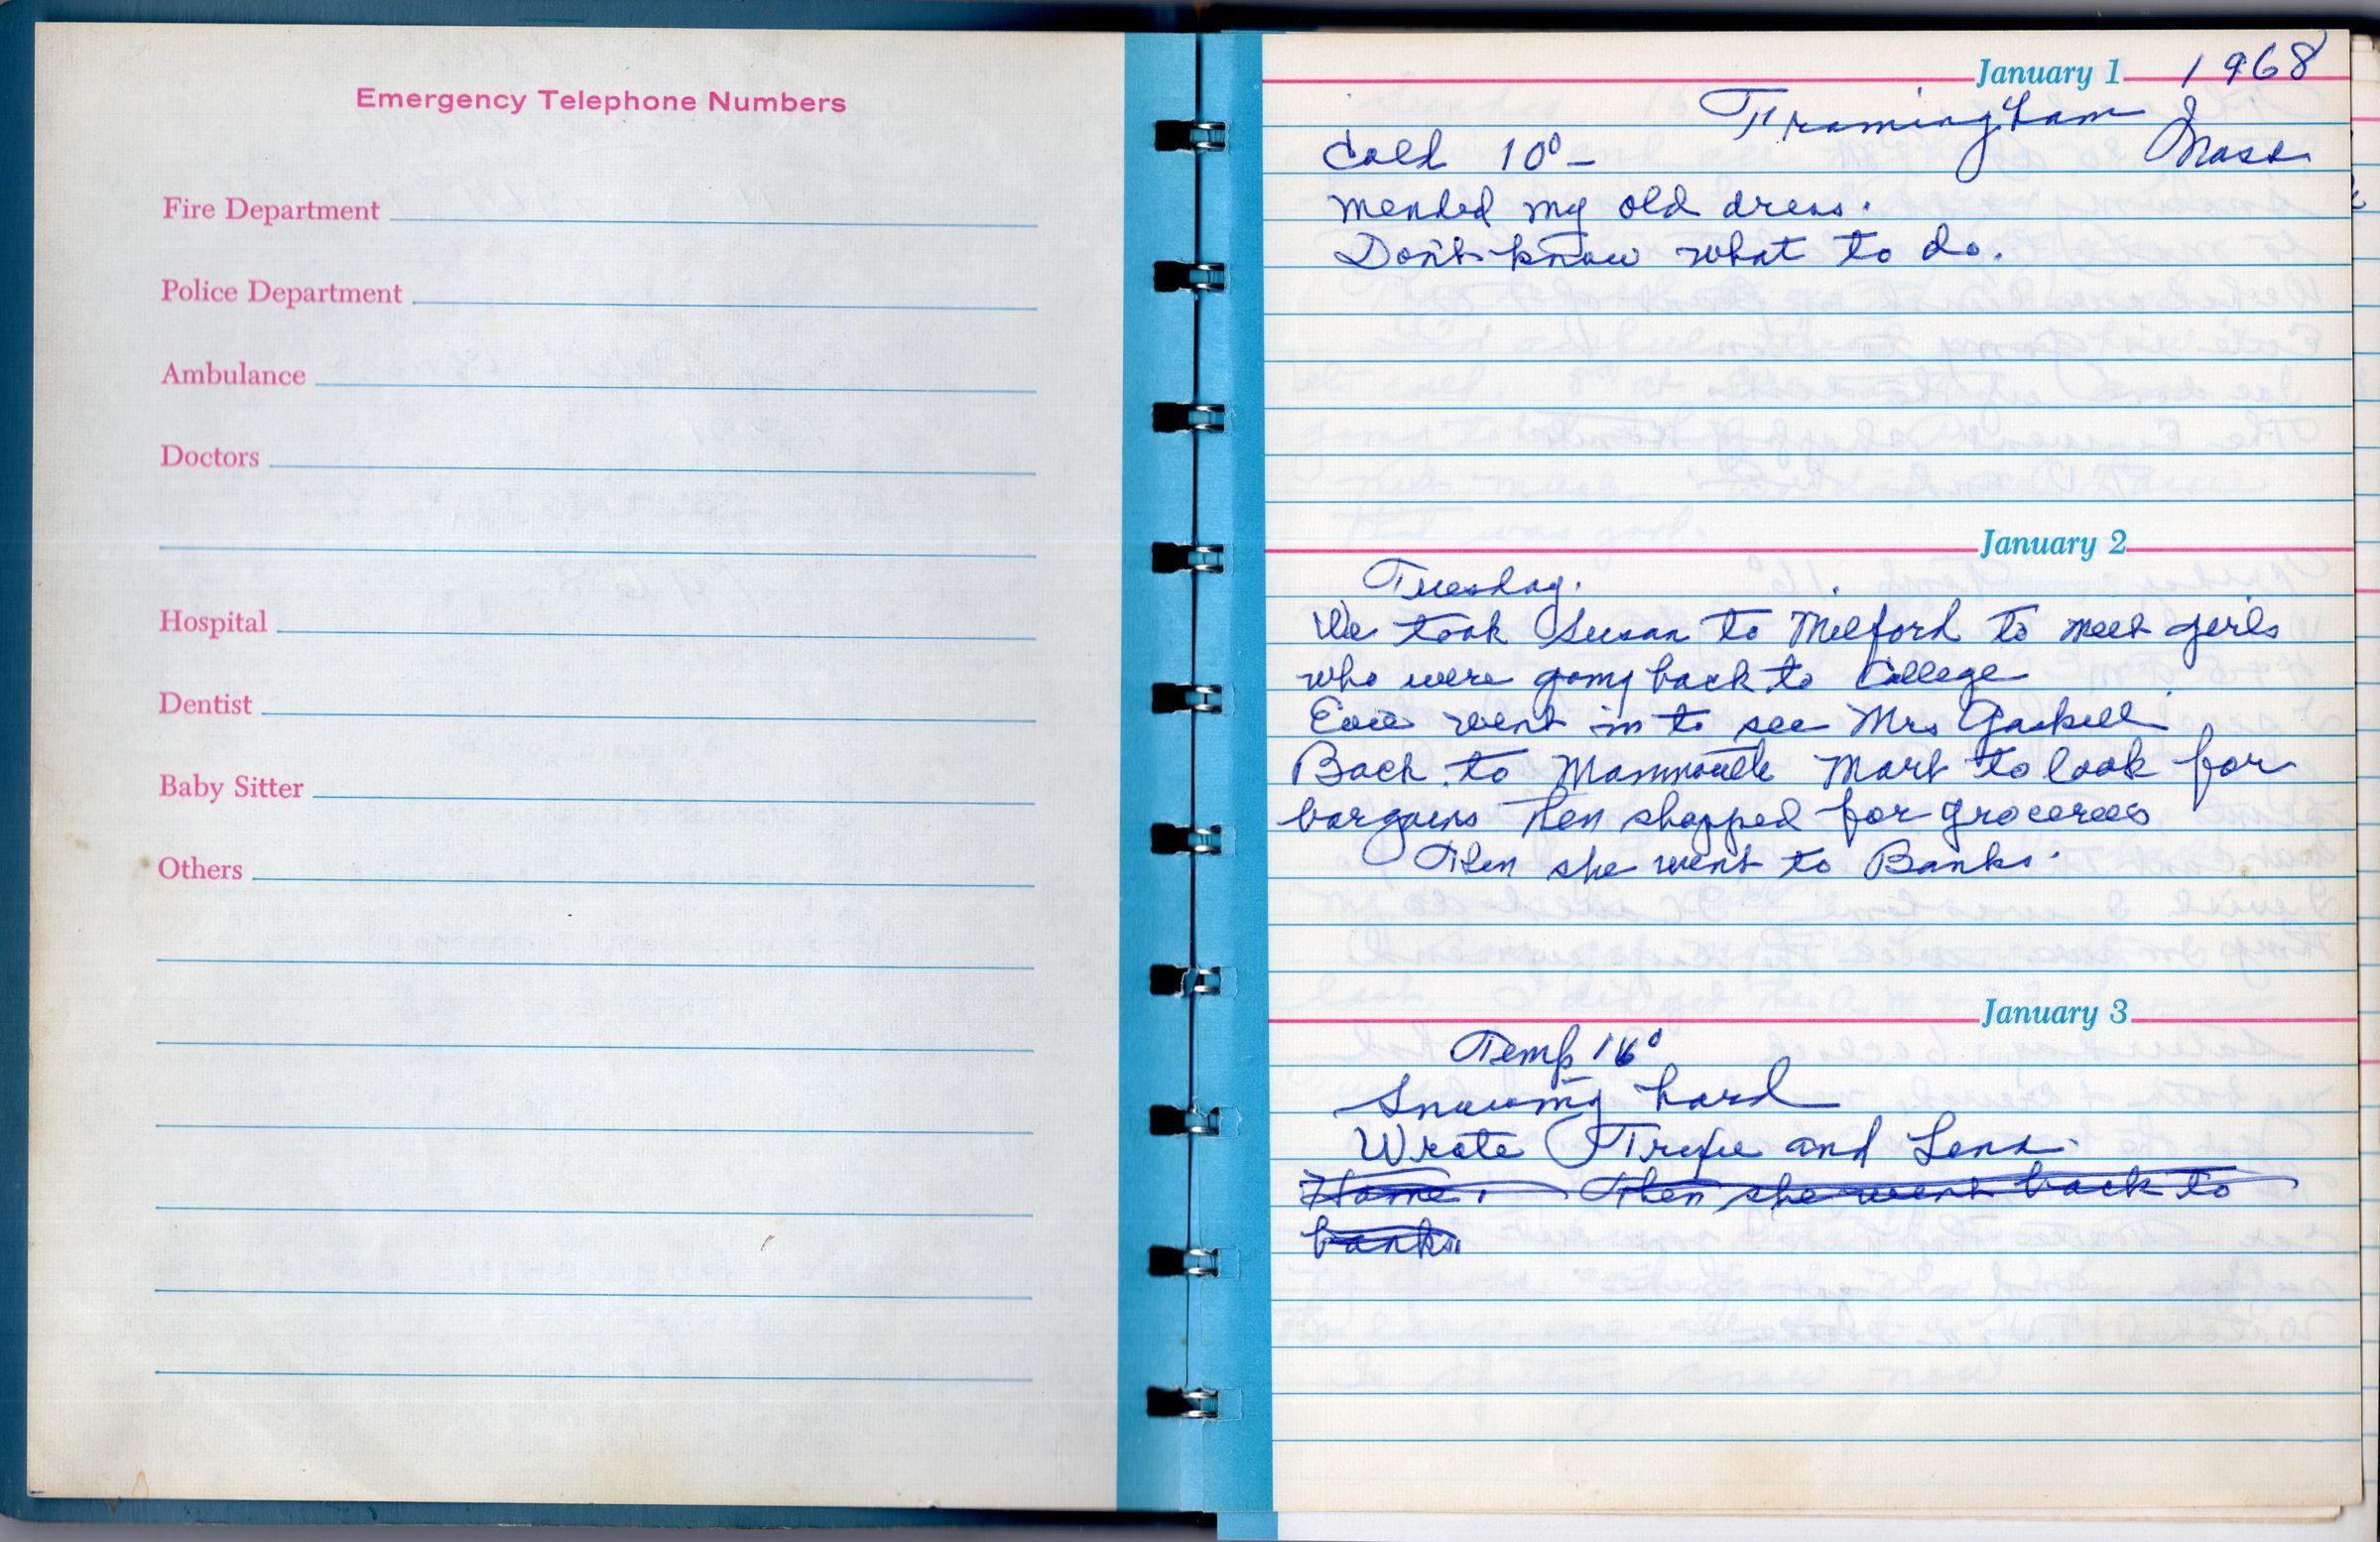 Emergency Telephone Numbers
Fire Department
Police Department
Ambulance
Doctors
Hospital
Dentist
Baby Sitter
Others
January 1 1968
Framingham
Cold 10° – Mass
mended my old dress.
Don't know what to do.
January 2
Tuesday.
We took Susan to Milford to meet girls
who were going back to College
Evie went in to see Mrs Gaskill
Back to Mammouth Mart to look for
bargains then shopped for groceries
Then she went to Banks.
January 3
Temp 16°
Snowing hard
Wrote and Lena.
Home. Then she went back to
banks.